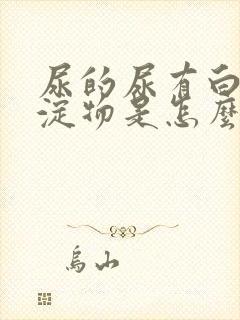 尿的尿有白
淀物是怎麽
烏山